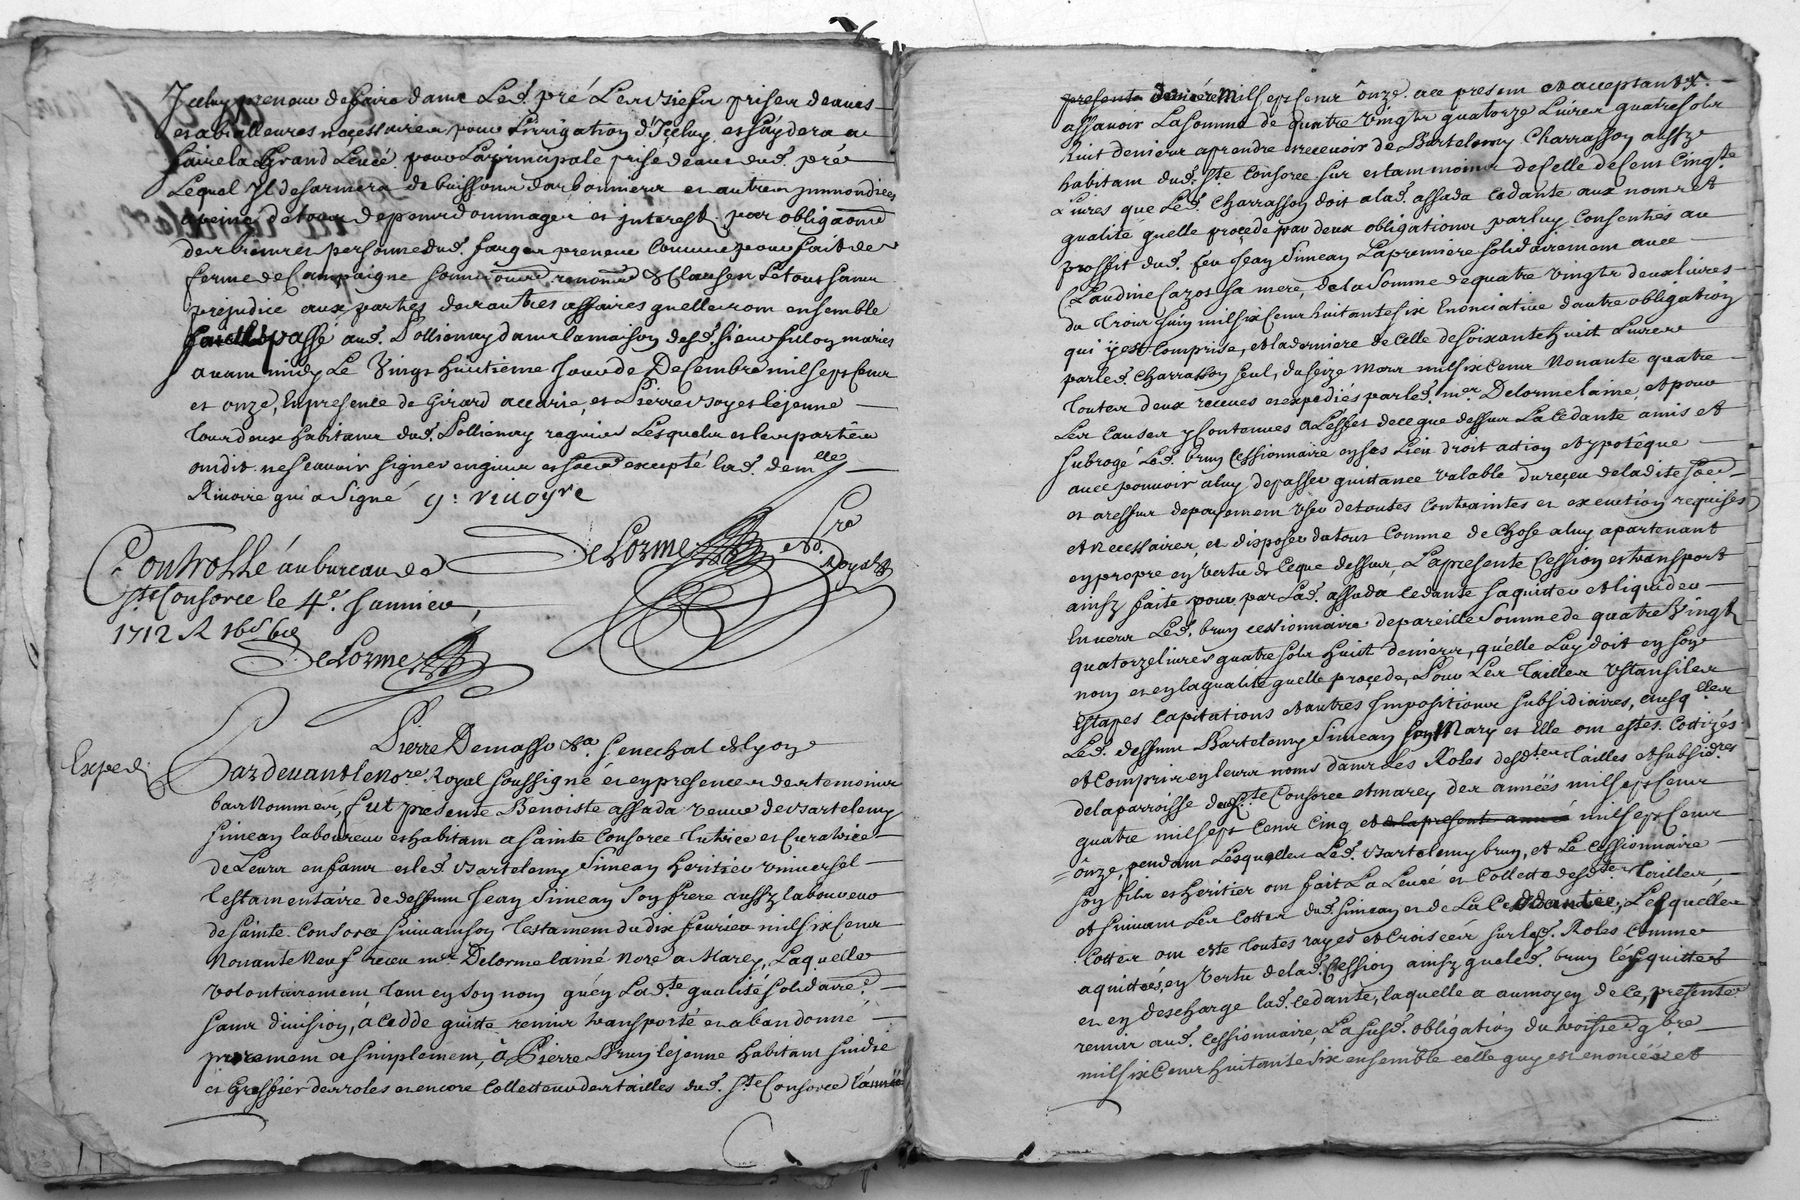 Iceluy preneur de faire dans Led. pré Les vsief pour prises deaues
et abialleures nécessaires pour Lirrigation d'Iceluy et s'aydera a
faire la Grand Levée pour La principale prise deaue dud. pré
Lequel Il desarmera de buissons darbonnieres et autres jmmondices
apeine de tous depens dommages et interest par obligaoñ
des biens et personne dud. preneur comme pour fait de
ferme de Campaigne soumoñs renoñs & Clauses Le tout sans
prejudice aux parties des autres affaires quelles ont ensemble
fait et passé aud. Pollionay dans la maison desd. sieur mariés
auant midy Le Vingt huitieme Jour de Decembre mil sept cens
et onze, En presence de Girard accarie, et Pierre Voyet le jeune
Tous deux habitans dud. Pollionay requis Lesquels et les parties
ont dit ne scauoir signer enquis et excepté lad. demlle
Riuoire qui a signé g: riuoyre
DeLorme No.re Royal
Controllé au bureau de
Ste Consorce le 4e. Januier
1712 R
DeLorme
Exped.
Pierre Demasso &a senechal de Lyon
Pardeuant le Nore. Royal soussigné et en presence des temoins
bas Nommés, fut presente Benoiste assada veuue de Bartelemy
Simean laboureur et habitant a sainte Consorce Tutrice et Curatrice
de Leurs enfans et led. Bartelemy Simean heritier vniuersel
Testamentaire de deffunt Jean Simean son frere aussy laboureur
de sainte Consorce suiuant son Testament du dix feurier mil six cens
Nonante Neuf receu mre Delorme lainé Nore a Marcy, Laquelle
volontairement, tant en son nom qu'en La dte qualité solidairemt.
sans diuision, a cedé quitté remis transporté et abandonné
purement et simplement, à Pierre Brun le jeune habitant sindic
et Greffier des roles et encore Collecteur des tailles dud. Ste Consorce l'année
presente derniere Mil sept cens ônze. ace present et acceptant
assauoir La somme de quatre vingts quatorze Liures quatre sols
huit deniers a prendre et receuoir de Bartelemy Charrasson aussy
habitant dud. Ste Consorce sur et tant moins de Celle de Cent Cinqte
Liures que Led. Charrasson doit a lad. assada cedante aux noms et
qualité quelle procede par deux obligations par luy Consenties au
proffit dud. feu Jean Simean La premiere solidairement auec
Claudine Cazot sa mere, de la Somme de quatre vingts deux liures
du Trois Juin mil six Cens huitante six Enonciatiue dautre obligation
qui ÿ est Comprise, et la derniere de Celle de soixante huit Liures
par led. Charrasson seul, du seize Mars mil six cens Nonante quatre
Toutes deux receues et expediés par led. mre Delorme laine, et pour
Les Causes y Contenues A Leffet de ce que dessus La Cedante a mis et
subrogé Led. brun Cessionnaire en ses Lieu droit action et ypotêque
auec pouuoir a luy de passer quittance valable du reçeu de ladite
et a reffus de payement vser de toutes Contraintes et execution requises
et Necessaires, et disposer du tout Comme de Chose a luy apartenant
en propre en Vertu de ce que dessus, La presente Cession et transport
ainsy faite pour par Lad. assada Cedante saquitter et liquider
Enuers Led. brun Cessionnaire de pareille Somme de quatre Vingts
quatorze liures quatre sols huit deniers, qu'elle Luy doit en son
nom et en la qualité quelle procede, Pour Les Tailles Vstansiles
Estapes Capitations et autres Impositions subsidiaires, ausqlles
Led. deffunt Bartelemy Simean son Mary et Elle ont estes Cottizés
et Compris en leurs noms dans Les Roles desdtes Tailles et subsidres
de la parroisse dud. Ste Consorce et marcy des annéés mil sept Cens
quatre mil sept Cens Cinq et de la presente année mil sept Cens
ônze, pendant Lesquelles Led. Bartelemy brun, et Le Cessionnaire
son fils et heritier ont fait La Leuée et Collecte desdtes Tailles,
et suiuant Les Cottes dud. Simean et de La Ceddante, Lesquelles
Cottes ont este Toutes rayes et Croisées sur Lesd. Roles Comme
aquittées, en Vertu de lad. Cession ainsy que led. brun Les quitte
et en descharge lad. cedante, laquelle a au moyen de Ce, presente
remis aud. Cessionnaire, La susd. obligation du trois gbre
mil six Cens huitante six ensemble celle quy est enoncée et